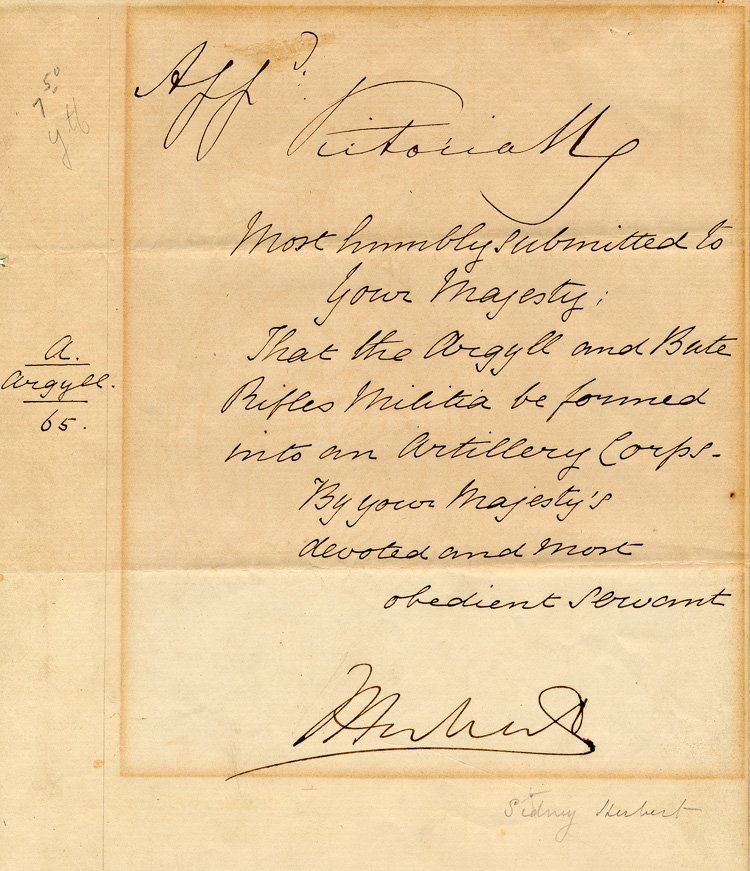 Appd.
Victoria R
Most humbly submitted to
Your Majesty;
That the Argyll and Bute
Rifles Militia be formed
into an Artillery Corps-
By your Majesty's
devoted and most
obedient Servant
A.
Argyll.
65.
Herbert
Sidney Herbert